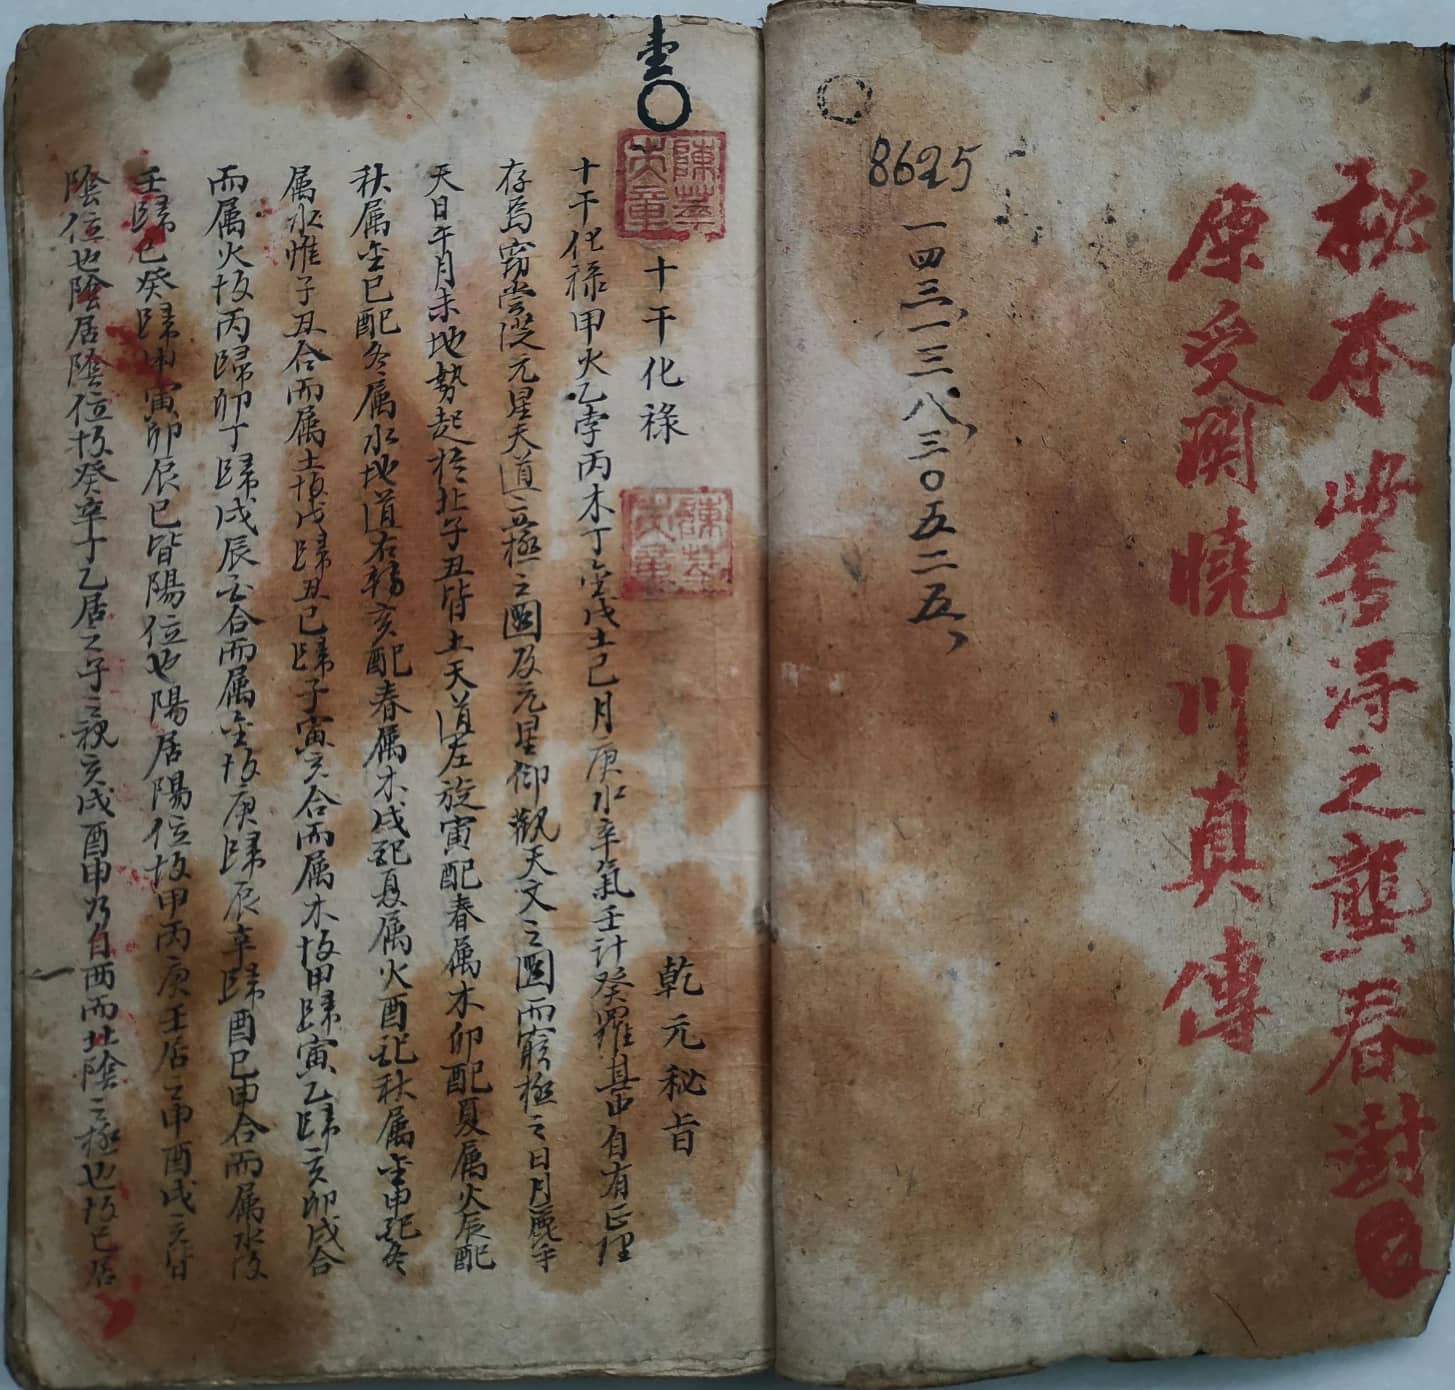 秘本此書得之龔春澍
原受関曉川真傳
8625
一四三、一三八、三〇五二五、
十干化祿
乾元秘旨
十干化祿甲火乙孛丙木丁金戊土己月庚水辛氣壬計癸羅其中自有正理
存焉窃嘗從元星天道立極之圖及元星仰觀天文之圖而窮極之日月麗乎
天日午月未地勢起於北子丑皆土天道左旋寅配春属木卯配夏属火辰配
秋属金巳配冬属水地道右轉亥配春属木戌配夏属火酉配秋属金申配冬
属水惟子丑合而属土故戊歸丑己歸子寅亥合而属木故甲歸寅乙歸亥卯戌合
而属火故丙歸卯丁歸戌辰酉合而属金故庚歸辰辛歸酉巳申合而属水故
壬歸巳癸歸申寅卯辰巳皆陽位也陽居陽位故甲丙庚壬居之申酉戌亥皆
陰位也陰居陰位故癸辛丁乙居之子之視亥戌酉申乃自西而北陰之極也故己居